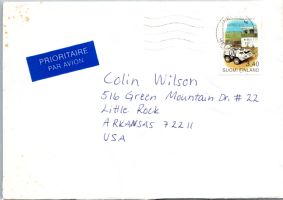 PRIORITAIRE
PAR AVION
SUOMI FINLAND
3,40
Colin Wilson
516 Green Mountain Dr. # 22
Little Rock
ARKANSAS 72211
USA